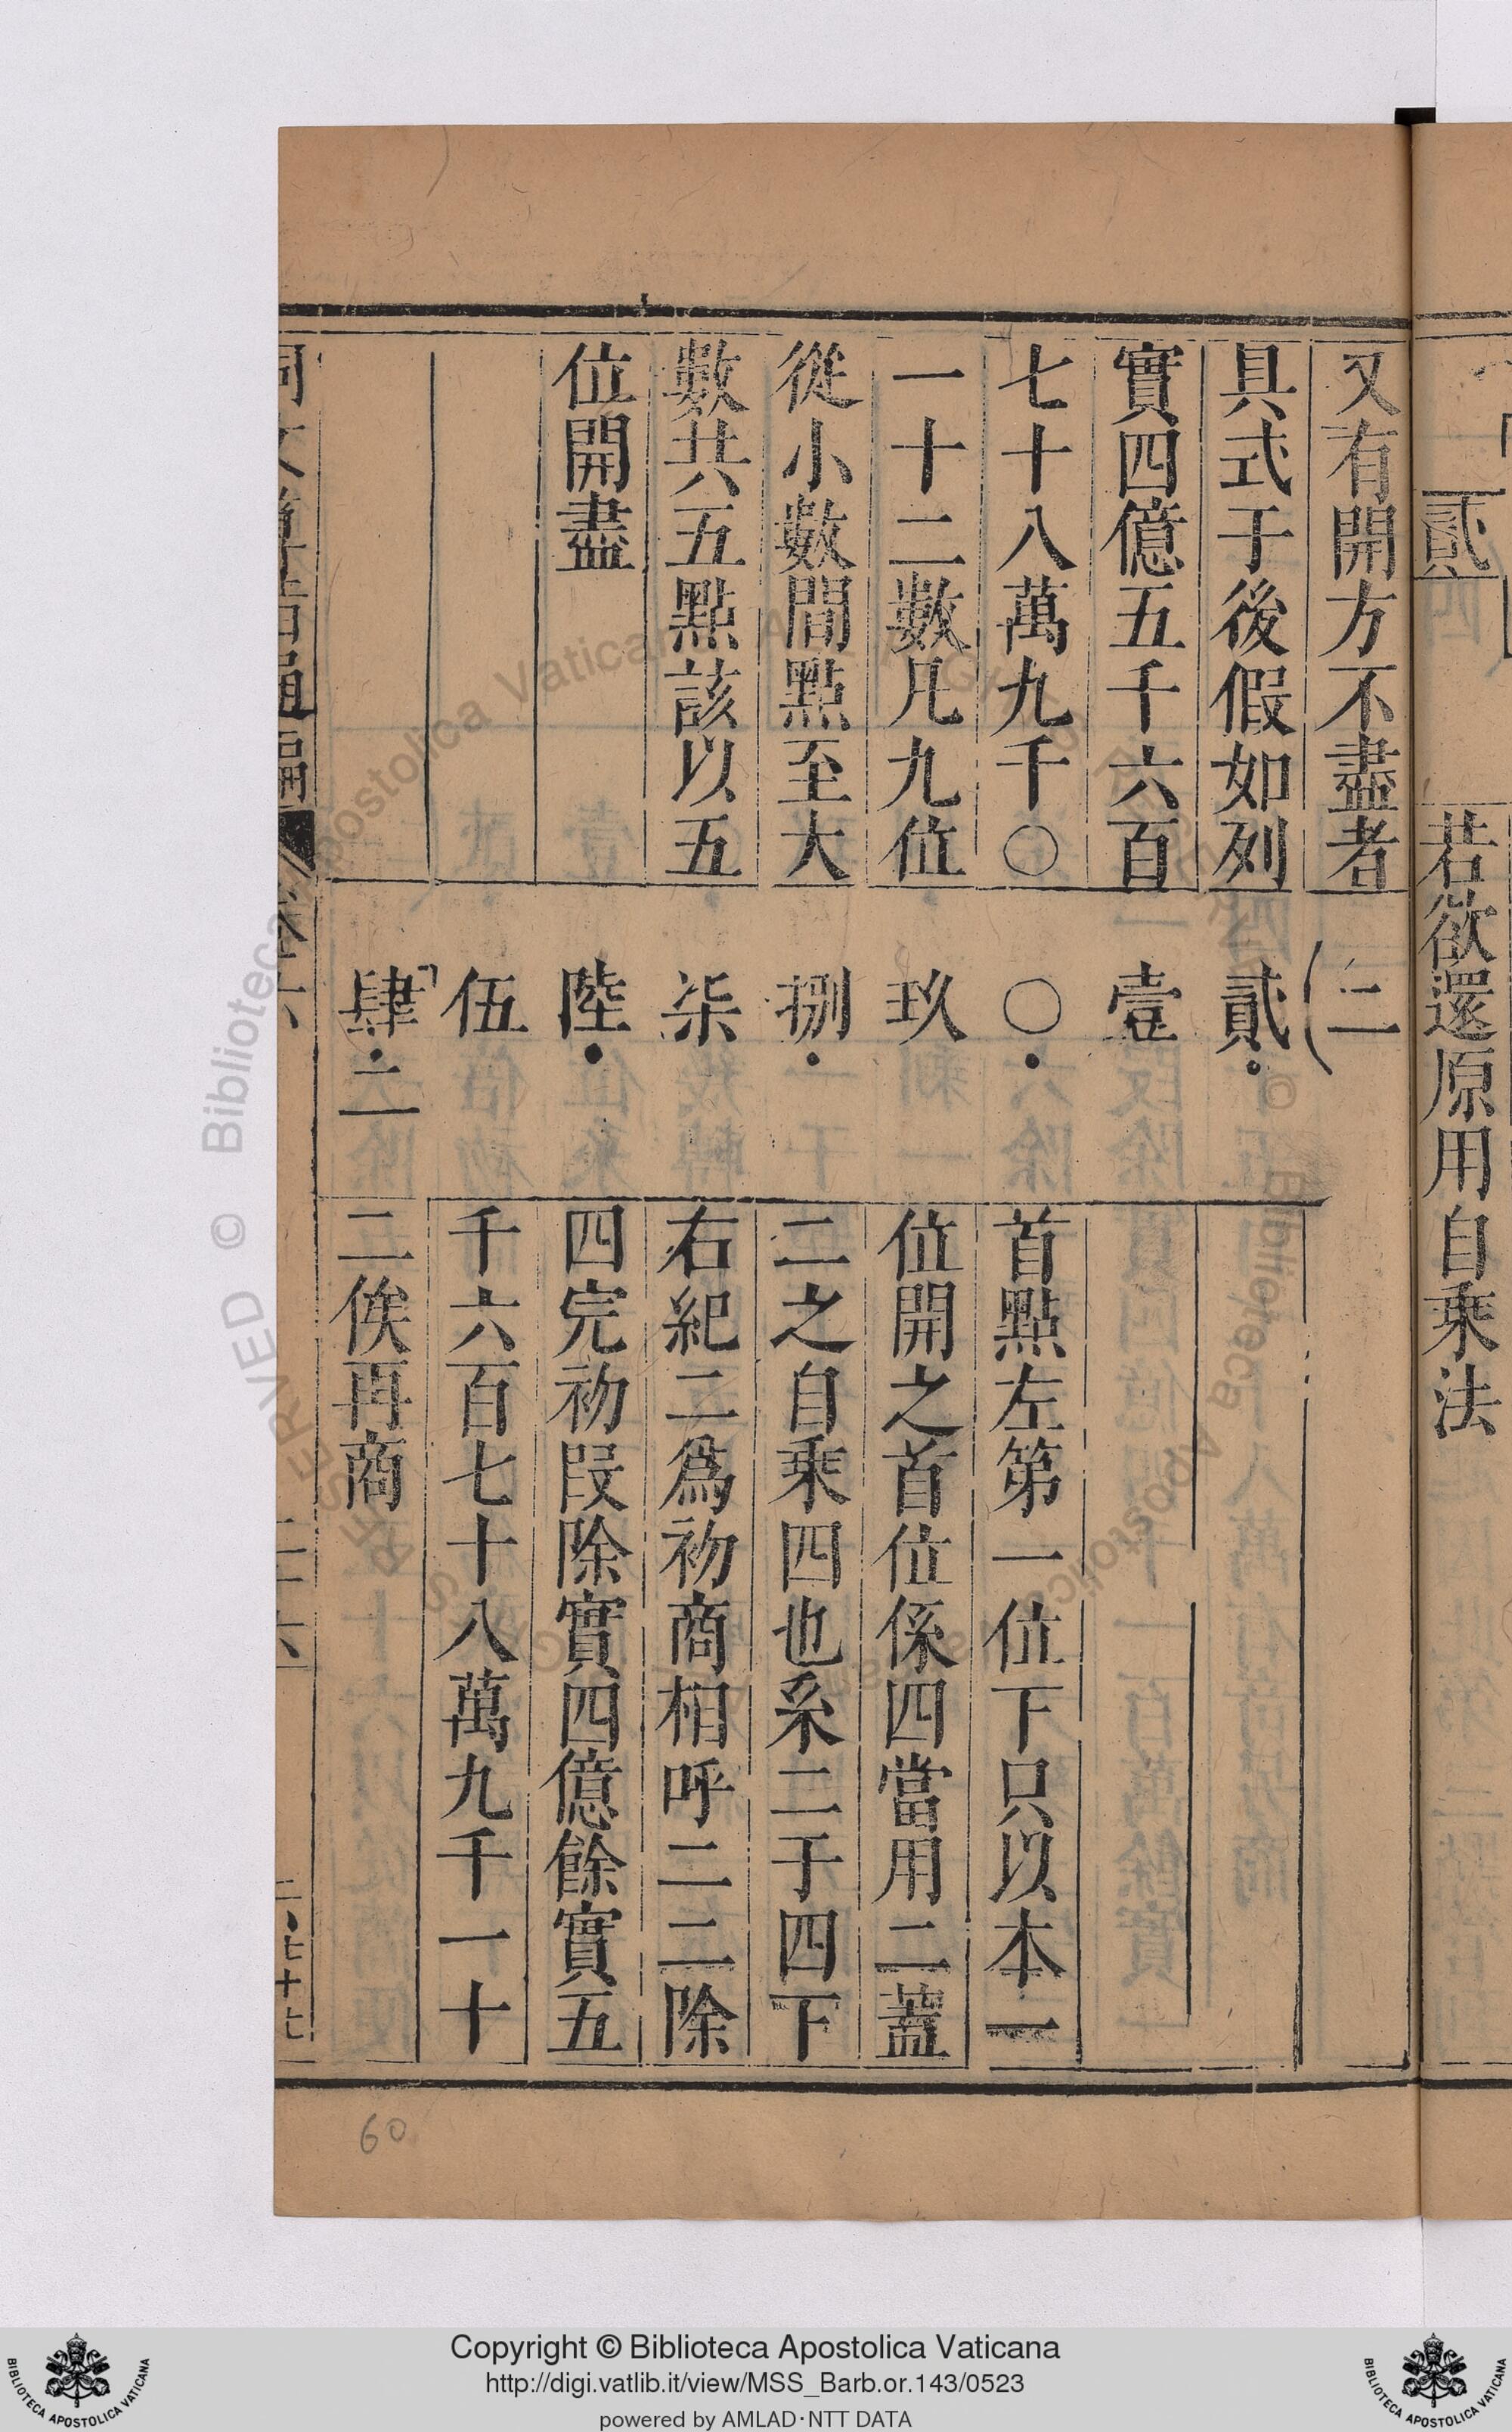 貳
若欲還原用自乘法
又有開方不盡者
具式于後假如列
實四億五千六百
七十八萬九千〇
一十二數凡九位
從小數間點至大
數共五點該以五
位開盡
二
貳
壹
〇
玖
捌
柒
陸
伍
肆 二
首點左第一位下只以本一
位開之首位係四當用二蓋
二之自乘四也系二于四下
右紀二爲初商相呼二二除
四完初段除實四億餘實五
千六百七十八萬九千一十
二俟再商
60
RESERVED © Biblioteca Apostolica Vaticana
Copyright © Biblioteca Apostolica Vaticana
http://digi.vatlib.it/view/MSS_Barb.or.143/0523
powered by AMLAD·NTT DATA
BIBLIOTECA APOSTOLICA VATICANA
BIBLIOTECA APOSTOLICA VATICANA